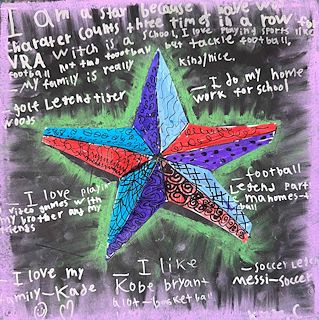 I am a star because I have won
charater counts three times in a row for
VRA Witch is a school, I love Playing sports like
football not two tooutball but tackle football,
My family is really kind/nice.
golf Letend tiger
woods
— I do my home
work for school
— I love playin
video games with
my brother any my
friends
— football
Legend Part
mahomes-
ball
— I love my
family — Kade
— I like
Kobe bryant
alot — basketball
— Soccer Legen
Messi — Soccer